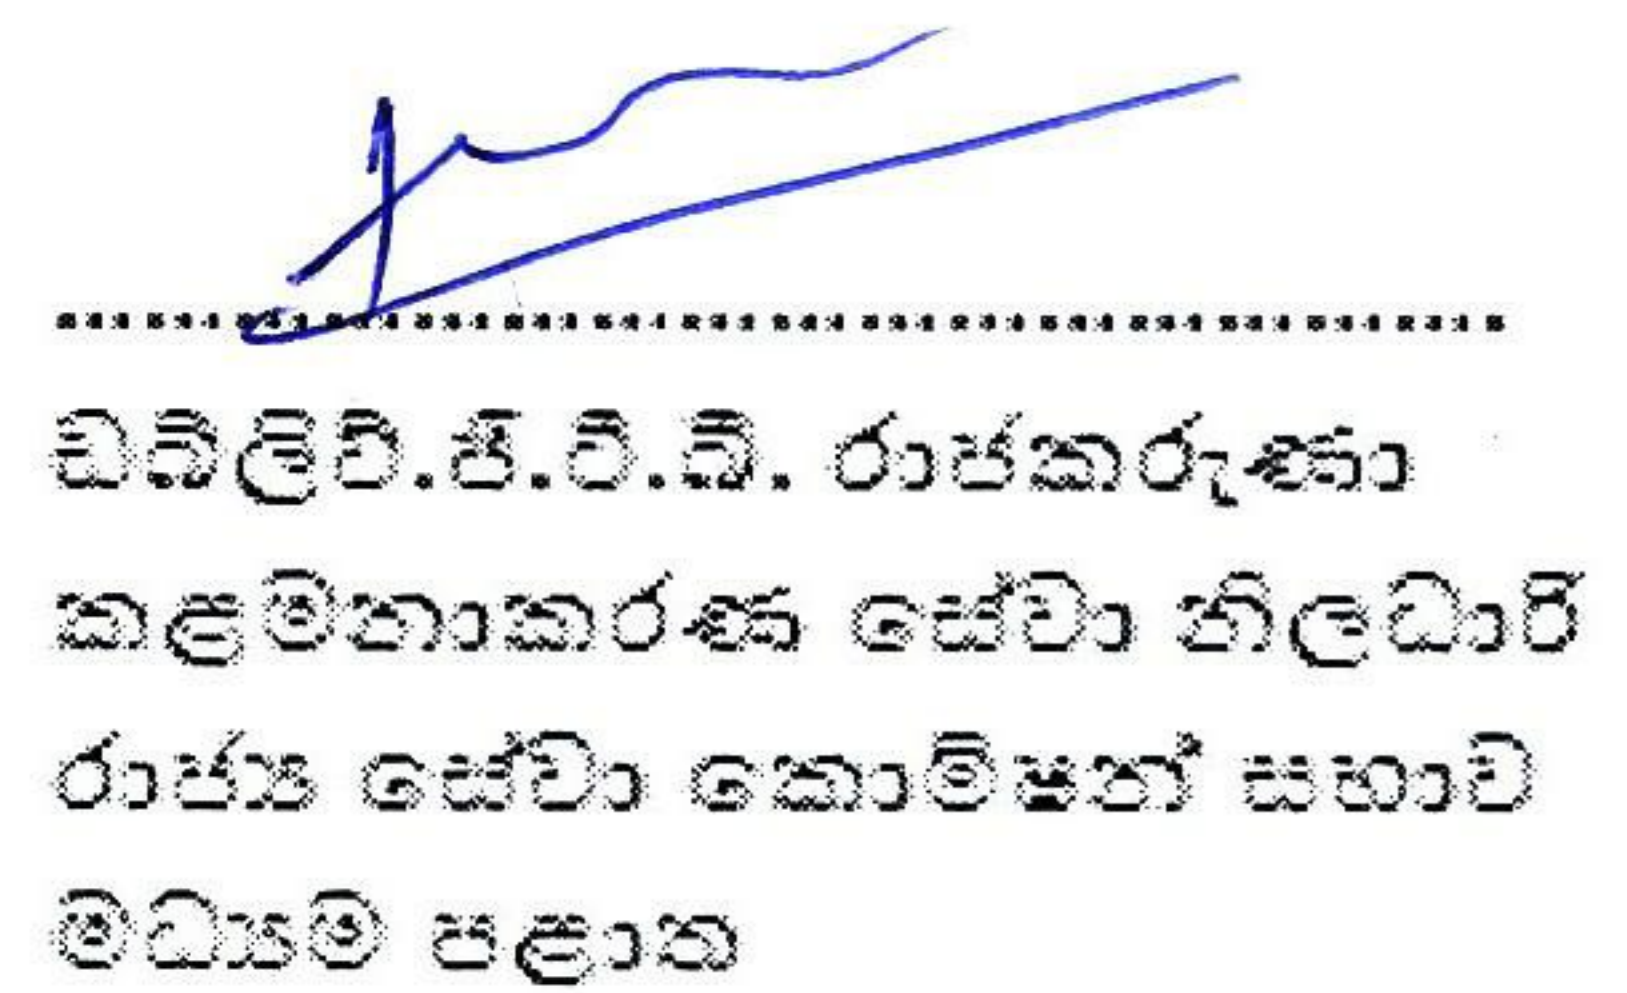 ඩබ්ලිව්.ජී.ටී.බී. රාජකරුණා
කළමනාකරණ සේවා නිලධාරී
රාජ්‍ය සේවා කොමිෂන් සභාව
මධ්‍යම පළාත